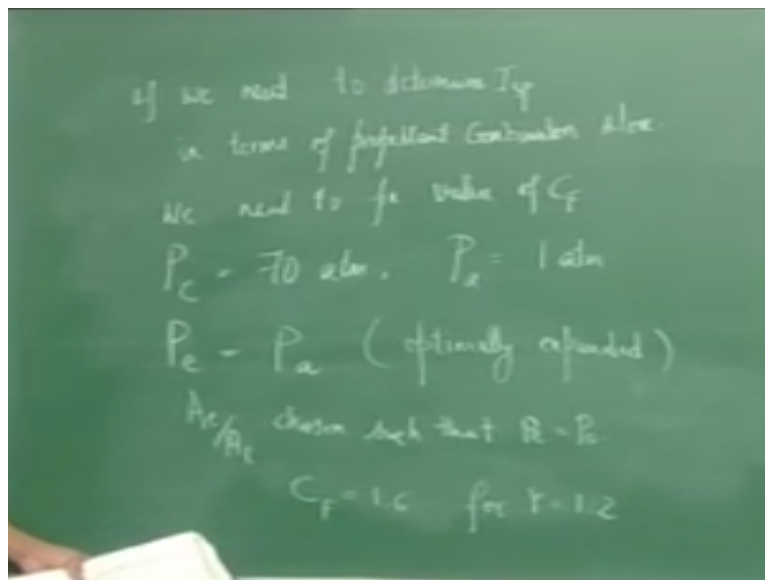 if we need to determine Isp
in terms of propellant Combination alone.
we need to fix value of CF
PC = 70 atm. Pa = 1 atm
Pe = Pa (optimally expanded)
Ae/At chosen such that Pe = Pa
CF = 1.6 for γ = 1.2